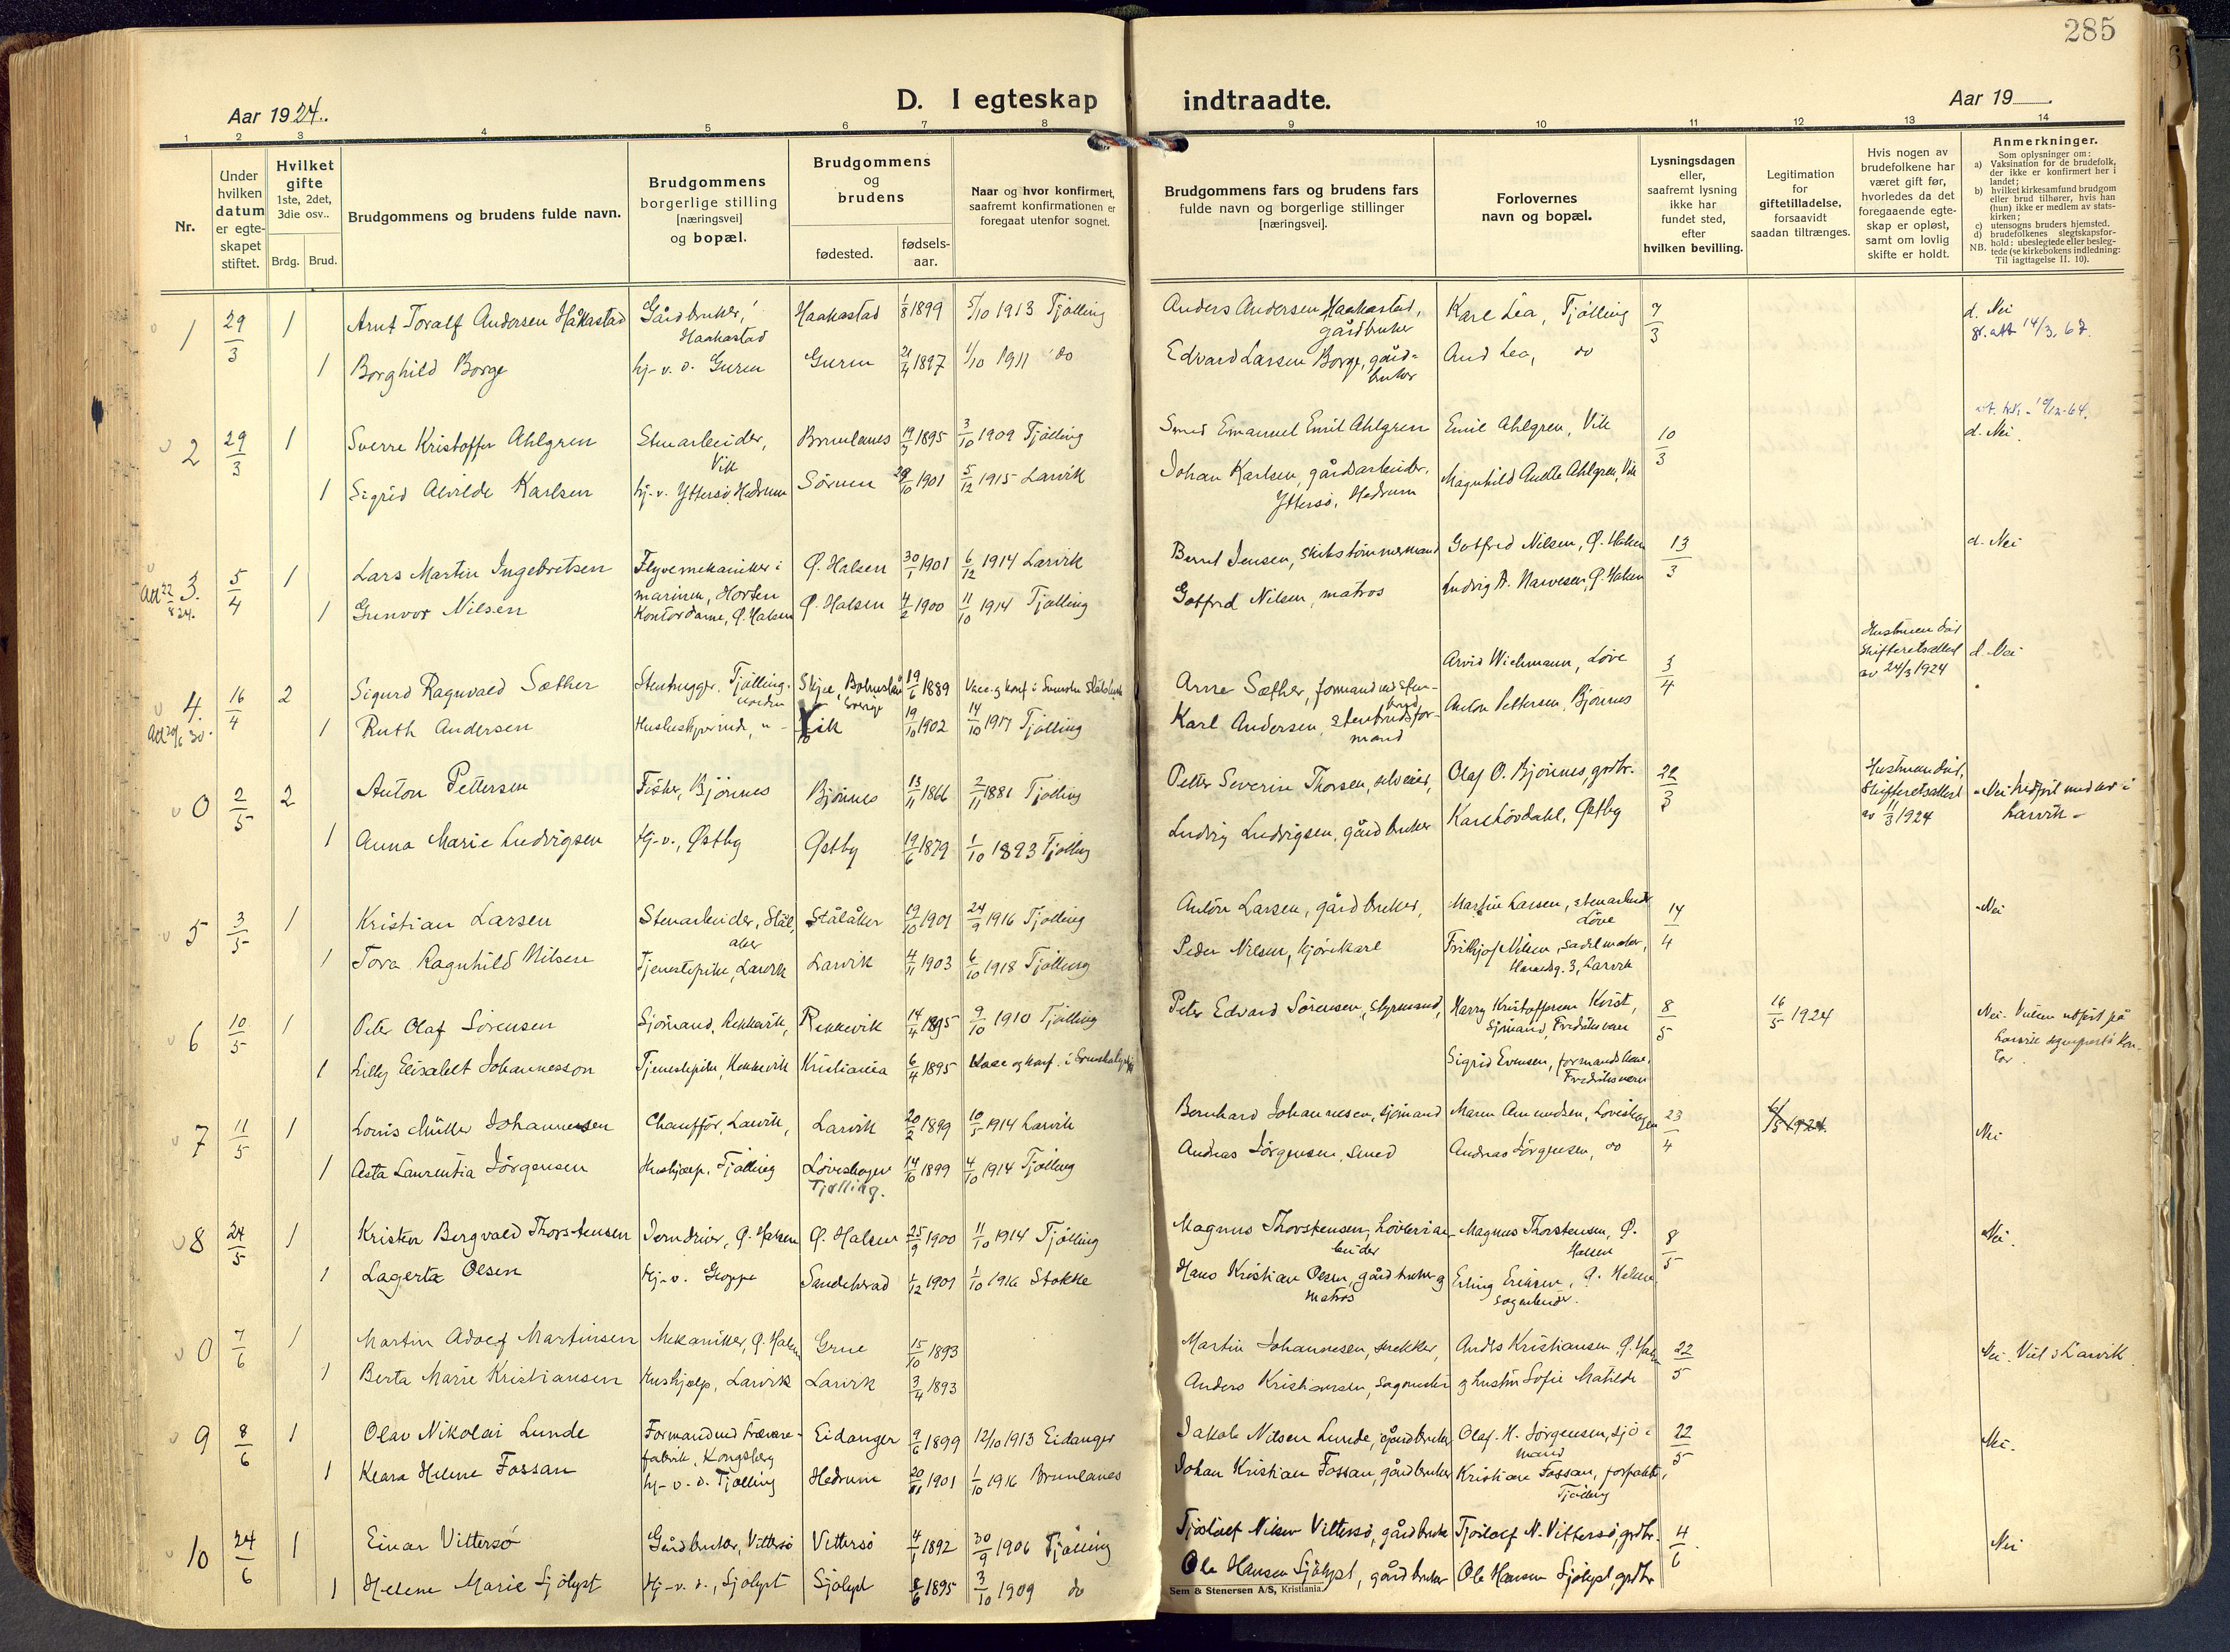 285
Aar 1924.
D. I egteskap indtraadte.
Aar 19
1 2 3 4 5 6 7 8 9 10 11 12 13 14
Nr.
Under hvilken datum er egte-skapet stiftet.
Hvilket gifte 1ste, 2det, 3die osv..
Brdg. Brud.
Brudgommens og brudens fulde navn.
Brudgommens borgerlige stilling [næringsvei] og bopæl.
Brudgommens og brudens
fødested.
fødsels-aar.
Naar og hvor konfirmert, saafremt konfirmationen er foregaat utenfor sognet.
Brudgommens fars og brudens fars fulde navn og borgerlige stillinger [næringsvei].
Forlovernes navn og bopæl.
Lysningsdagen eller, saafremt lysning ikke har fundet sted, efter hvilken bevilling.
Legitimation for giftetilladelse, forsaavidt saadan tiltrænges.
Hvis nogen av brudefolkene har været gift før, hvorledes da det foregaaende egte-skap er opløst, samt om lovlig skifte er holdt.
Anmerkninger.
Som oplysninger om:
a) Vaksination for de brudefolk, der ikke er konfirmert her i landet;
b) hvilket kirkesamfund brudgom eller brud tilhører, hvis han (hun) ikke er medlem av stats-kirken;
c) utensogns bruders hjemsted.
d) brudefolkenes slegtskapsfor-hold: ubeslegtede eller besleg-tede (se kirkebokens indledning:
NB. Til iagttagelse II. 10).
1 29/3 1 Arnt Toralf Andersen Håkastad Gårdbruker, Haakastad Haakastad 1/8 1899 5/10 1913 Tjølling Anders Andersen Haakastad, gårdbruker Karl Lea, Tjølling 7/3 d. Nei
14/3. 67.
1 Borghild Borge hj-v. d. Guren Guren 21/4 1897 1/10 1911 do Edvard Larsen Borge, gård-bruker Aud Lea, do
2 29/3 1 Sverre Kristoffer Ahlgren Stenarbeider, Vik Brunlanes 19/3 1895 3/10 1909 Tjølling Smed Emanuel Emil Ahlgren Emil Ahlgren, Vik 10/3 d. Nei.
10/12-64.
1 Sigrid Alvilde Karlsen hj-v. Yttersø, Hedrum Sørum 29/10 1901 5/12 1915 Larvik Johan Karlsen, gårdsarbeider, Yttersö, Hedrum Magnhild Ahlgren, Vik
Att 22/8 24.
3. 5/4 1 Lars Martin Ingebretsen Flyvemekaniker i marinen, Horten Ø. Halsen 30/1 1901 6/12 1914 Larvik Bernt Jensen, skibstømmermand Gotfred Nilsen, Ø. Halsen 13/3 d. Nei
1 Gunvor Nilsen Kontordame, Ø. Halsen Ø. Halsen 4/2 1900 11/10 1914 Tjølling Gotfred Nilsen, matros Ludvig A. Narvesen, Ø. Halsen
4. 16/4 2 Sigurd Ragnvald Sæther Stenhugger, Tjølling Skjee, Bohuslän Sverige 19/6 1889 Vacc. og konf. i Svenska Statskirke Arne Sæther, formand ved sten-brud Arvid Wichmann, Løve 3/4 Hustruen död skifteretsattest av 24/3 1924 d. Nei
1 Ruth Andersen Husbestyrerinde, " - Vik 19/10 1902 14/10 1917 Tjølling Karl Andersen, stenbrudsfor-mand Anton Pettersen, Bjønnes
0 2/5 2 Anton Pettersen Fisker, Bjönnes Bjönnes 13/11 1866 2/11 1881 Tjølling Petter Severin Thorsen, selveier, Olaf O. Bjönnes grdbr. 22/3 Hustruen död, Skifteretsattest av 11/3 1924 Nei Larvik
1 Anna Marie Ludvigsen Hj-v., Østby Østby 19/6 1879 1/10 1893 Tjølling Ludvig Ludvigsen, gårdbruker Karl Hövdahl, Østby
5 3/5 1 Kristian Larsen Stenarbeider, Stålaker Stålåker 19/10 1901 24/9 1916 Tjølling Anton Larsen, gårdbruker, Martin Larsen, stenarbeider Löve 14/4 Nei
1 Tora Ragnhild Nilsen Tjenestepike, Larvik Larvik 4/11 1903 6/10 1918 Tjølling Peder Nilsen, kjörekarl Frithjof Nilsen, sadelmaker, 3, Larvik
6 10/5 1 Peter Olaf Sörensen Sjömand, Rekkevik, Rekkevik 14/4 1895 9/10 1910 Tjølling Peter Edvard Sörensen, styrmand, Harry Kristoffersen Kvist, Sjömand, Fredriksvern 8/5 16/5 1924 Nei. Vielsen utført på Larvik
1 Lilly Elisabet Johannesson Tjenestepike, Rekkevik Kristiania 6/4 1895 Sigrid Evensen, Fredriksvern
7 11/5 1 Louis Müller Johannessen Chauffør, Larvik, Larvik 20/2 1899 10/5 1914 Larvik Bernhard Johannesen, sjömand Maren Amundsen, Löveskogen 23/4 Nei
1 Asta Laurentia Jörgensen Hushjælp, Tjölling Löveskogen Tjølling. 14/10 1899 4/10 1914 Tjølling Andreas Jörgensen, smed Andreas Jörgensen, do
8 24/5 1 Kristen Bergvald Thorstensen Jerndreier, Ø. Halsen Ø. Halsen 25/9 1900 11/10 1914 Tjølling Magnus Thorstensen, høvleriar-beider Magnus Thorstensen, Ø. Halsen 8/5 Nei.
1 Lagerta Olsen Hj-v. Groppe Sandeherad 1/12 1901 1/10 1916 Stokke Hans Kristian Olsen, gårdbruker og matros Erling Eriksen, Ø. Halsen
0 7/6 1 Martin Adolf Martinsen Mekaniker, Ø. Halsen Grue 15/10 1893 Martin Johannesen, snekker, Anders Kristiansen Ø. Halsen 22/5 Nei. Viet i Larvik
1 Berta Marie Kristiansen Hushjælp, Larvik Larvik 3/4 1893 Anders Kristiansen, og hustru Sofie Matilde
9 8/6 1 Olav Nikolai Lunde Formand ved trævare-fabrik, Kongsberg Eidanger 9/6 1899 12/10 1913 Eidanger Jakob Nilsen Lunde, gårdbruker Olaf. H. Jörgensen, sjö-mand 22/5 Nei.
1 Klara Helene Fossan hj-v. d. Tjølling Hedrum 20/11 1901 1/10 1916 Brunlanes Johan Kristian Fossan, gårdbruker Kristian Fossan, forpakter, Tjølling
10 24/6 1 Einar Vittersö Gårdbruker, Vittersö Vittersö 4/1 1892 30/9 1906 Tjølling Tjöstolf Nilsen Vittersö, gårdbruker Tjöstolf N. Vittersö, grdbr. 4/6 Nei
1 Helene Marie Sjölyst Hj-v. d., Sjölyst Sjölyst 8/6 1895 3/10 1909 do Ole Hansen Sjölyst, gårdbruker Ole Hansen Sjölyst, grdbr
Sem & Stenersen A/S, Kristiania.